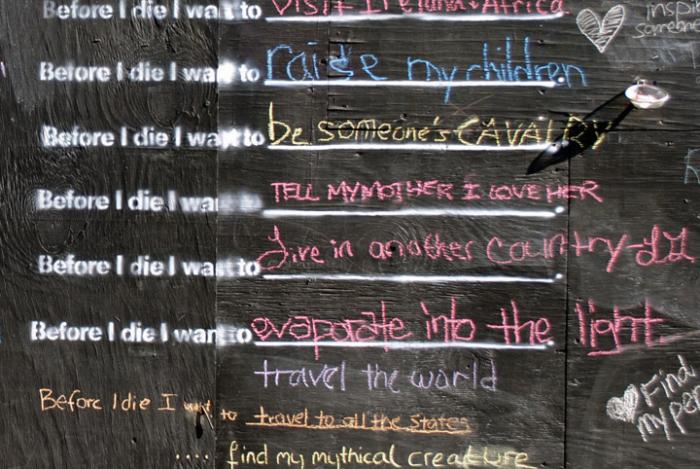 Before I die I want to visit Ireland & Africa.
inspire someone
Before I die I want to raise my children
Before I die I want to be someone's CAVALRY
Before I die I want to TELL MY MOTHER I LOVE HER
Before I die I want to Live in another country-
Before I die I want to evaporate into the light
travel the world
Before I die I want to travel to all the states
.... find my mythical creature
Find
my